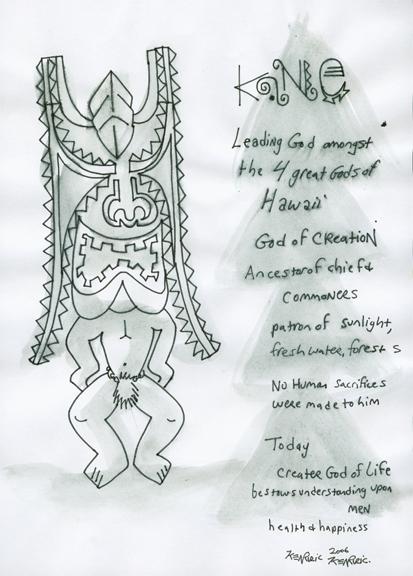 KaNE
Leading God amongst
the 4 great Gods of
Hawaii
God of CREATION
Ancestor of chief &
COMMONERS
patron of sunlight,
fresh water, forests
No Human Sacrifices
were made to him
Today
creator God of Life
bestows understanding upon
MEN
health & happiness
KENDRIC 2006
KENDRIC.